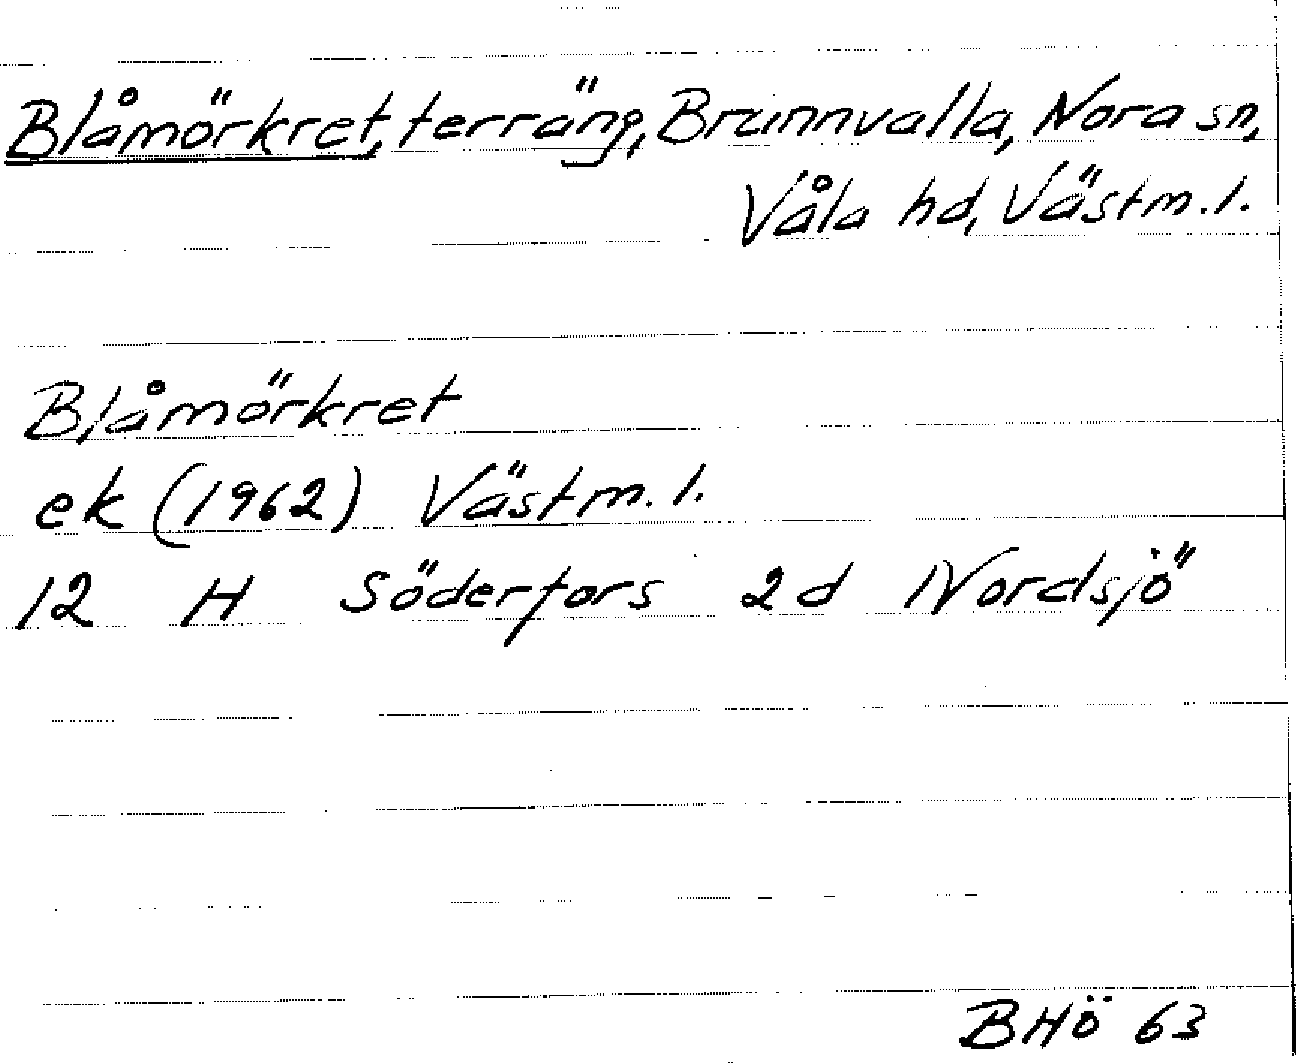 Blåmörkret, terräng, Brunnvalla, Nora sn,
Våla hd, Västm. l.
Blåmörkret
ek (1962) Västm. l.
12 H Söderfors 2d Nordsjö
BHö 63